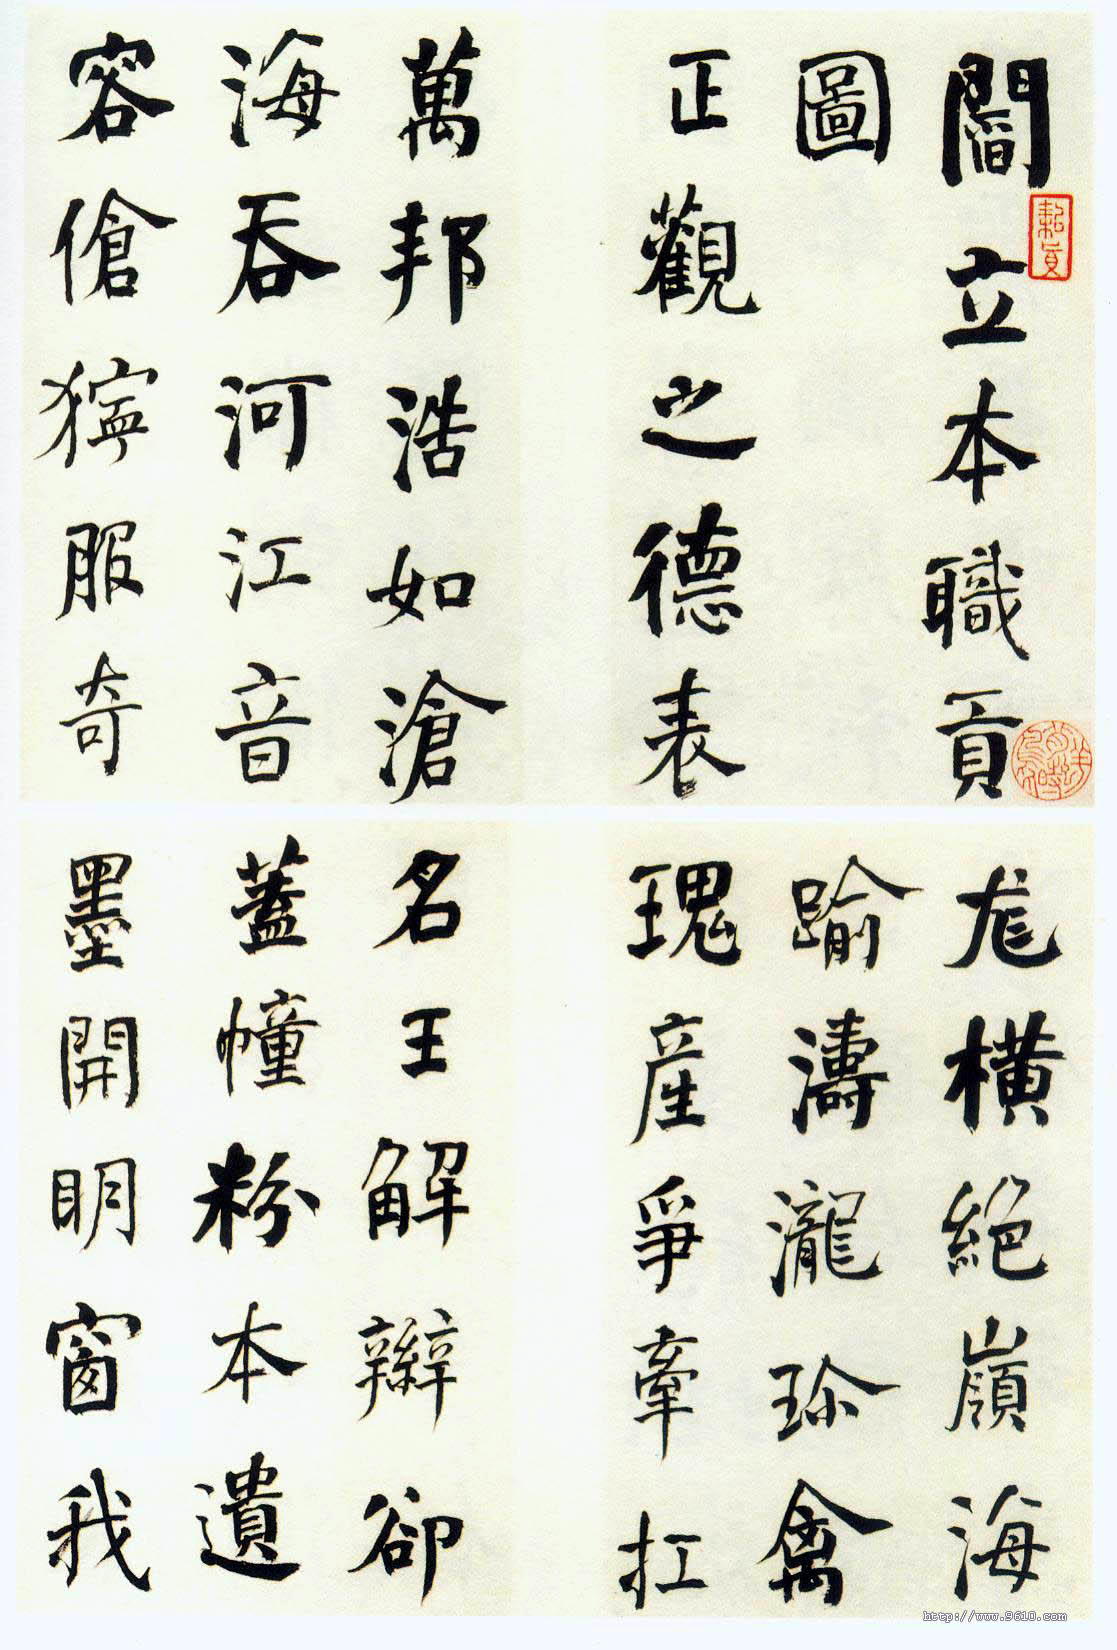 閻立本職貢
圖
正觀之德表
萬邦浩如滄
海吞河江音
容傖獰服奇
尨橫絕嶺海
踰濤瀧珍禽
瑰產爭牽扛
名王解辮卻
蓋幢粉本遺
墨開明窗我
http://www.9610.com